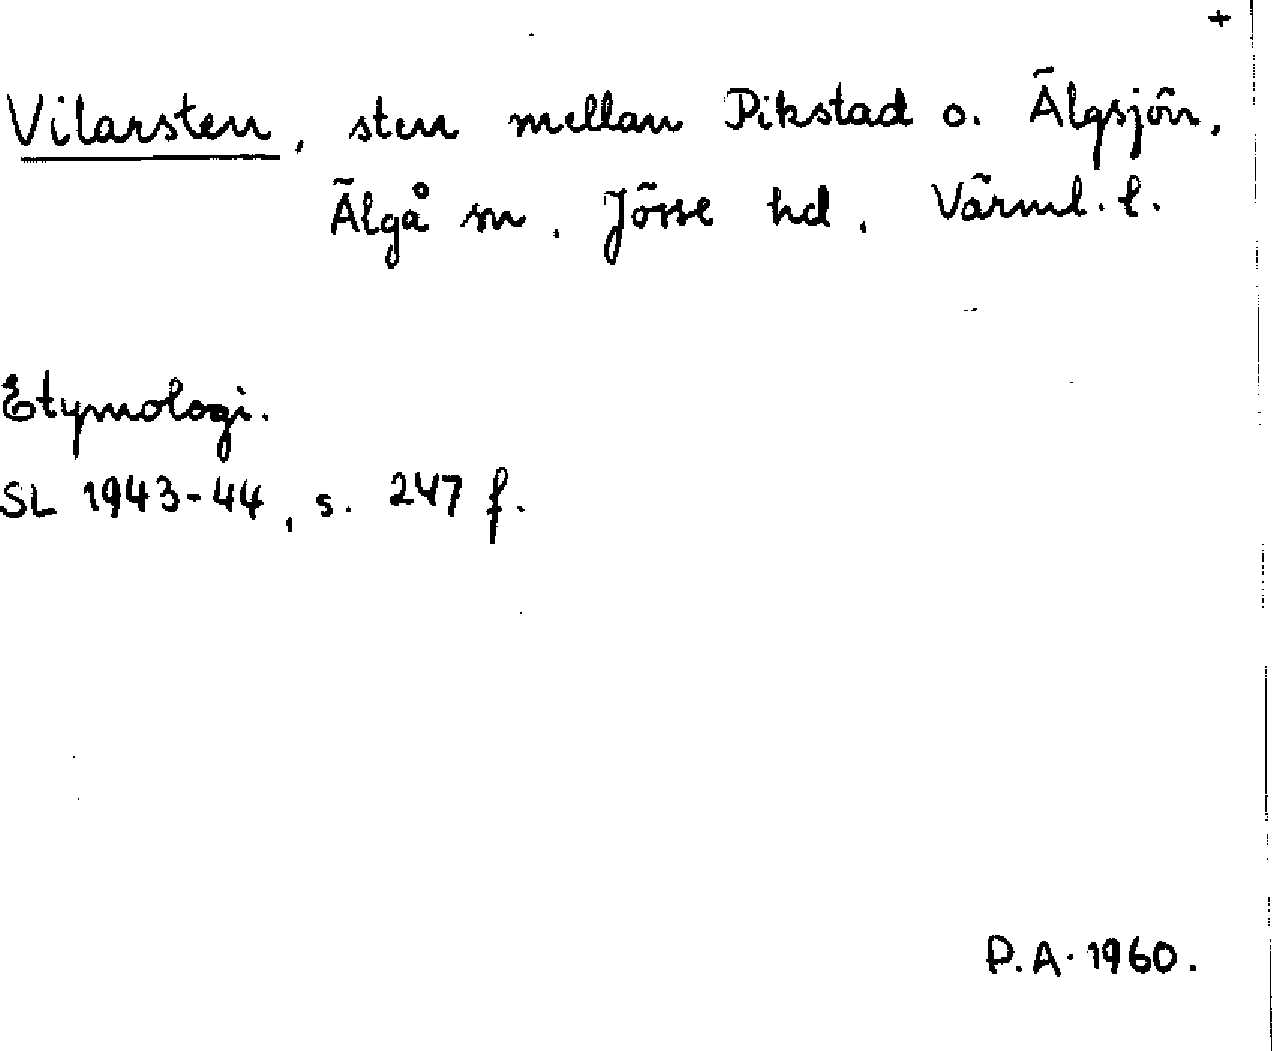 +
Vilarsten, sten mellan Pikstad o. Älgsjön,
Älgå sn, Jösse hd, Värml. l.
Etymologi.
SL 1943-44, s. 247 f.
P.A. 1960.